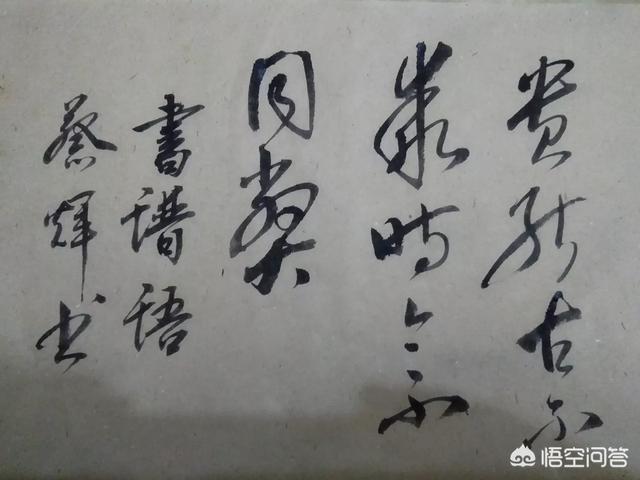 贵能古不
乖時今不
同獘
書譜語
蔡輝书
悟空问答